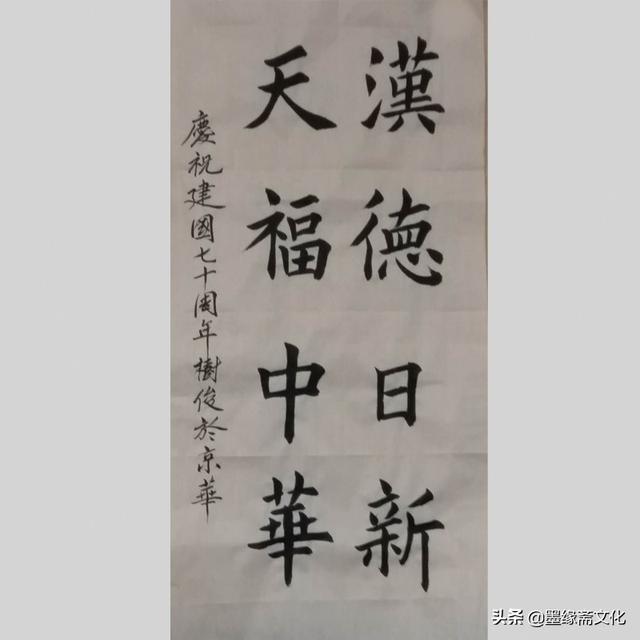 漢德日新
天福中華
慶祝建國七十周年樹俊於京華
头条 @墨缘斋文化